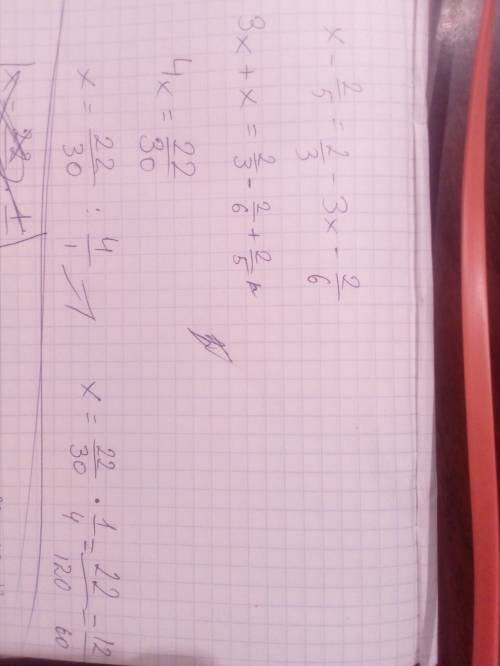 x - 2/5 = 2/3 - 3x - 2/6
3x + x = 2/3 - 2/6 + 2/5
4x = 22/30
x = 22/30 : 4/1
x = 22/30 · 1/4 = 22/120 = 12/60